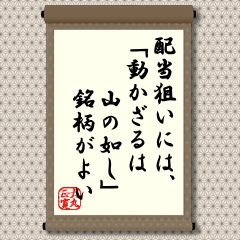 配当狙いには、
「動かざるは
山の如し」
銘柄がよい